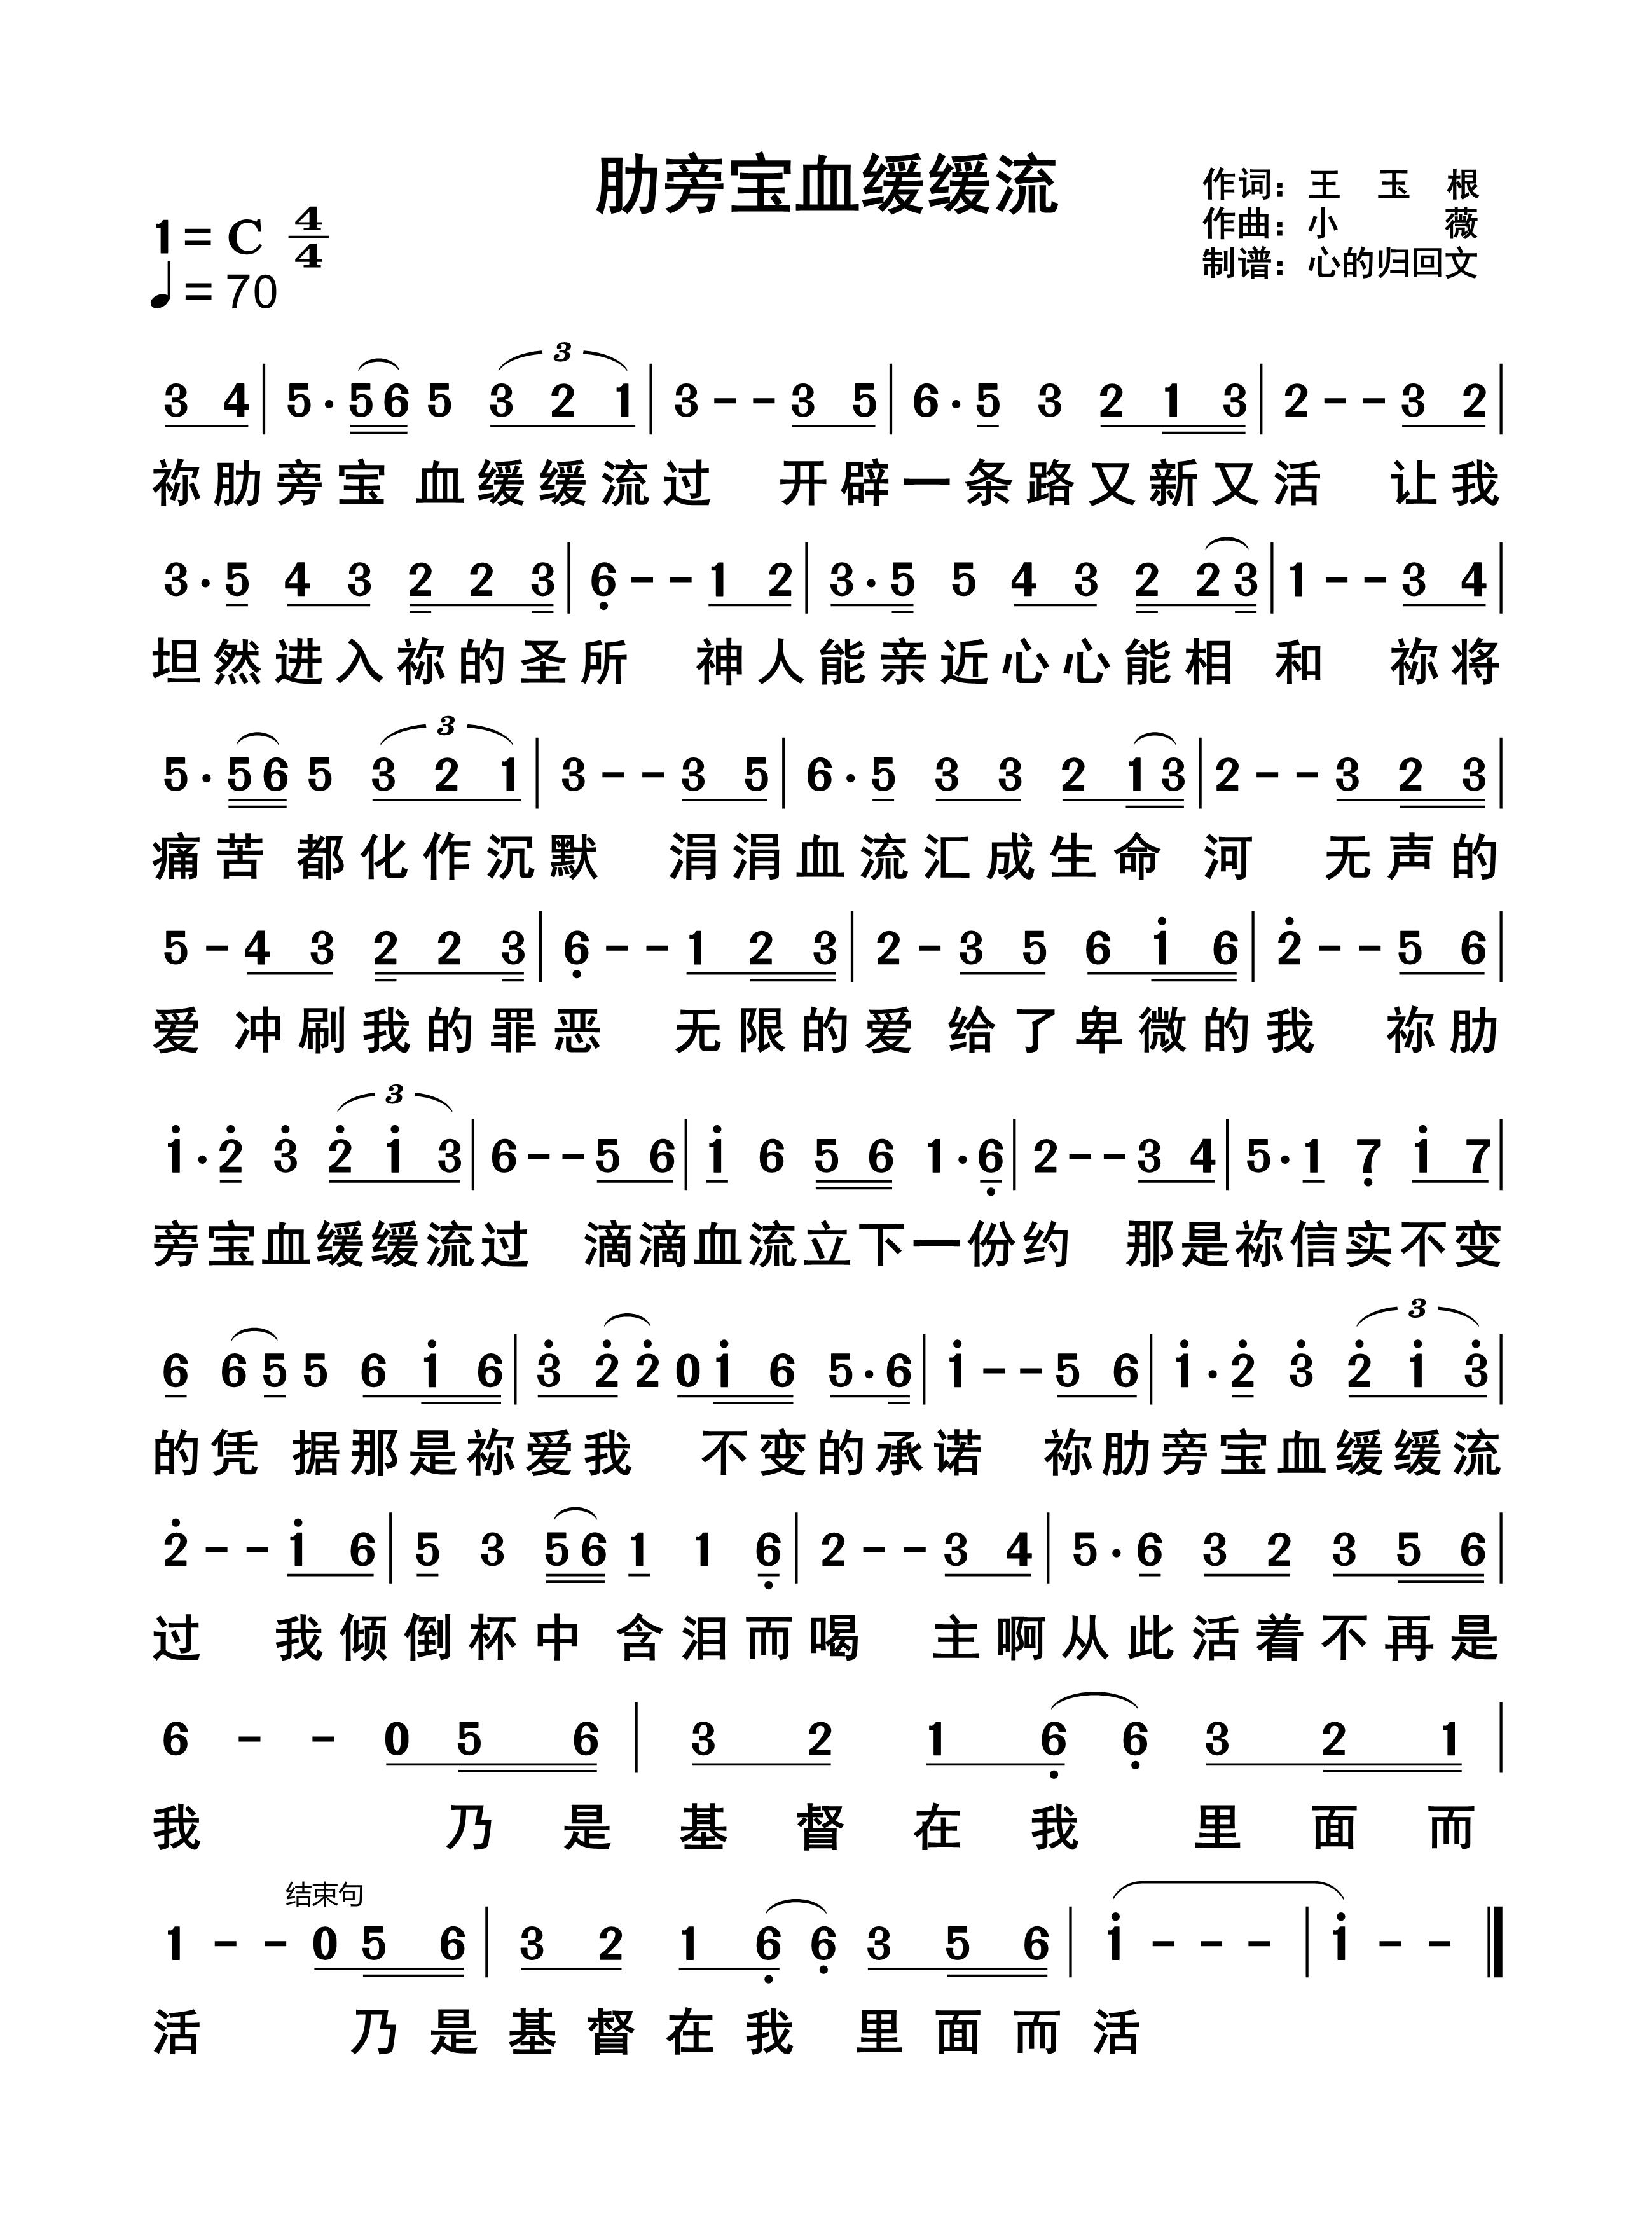 肋旁宝血缓缓流
作词：王 玉 根
作曲：小 薇
制谱：心的归回文
1=C 4/4
♩=70
3 4 | 5· 5 6 5 3 2 1 | 3 - - 3 5 | 6· 5 3 2 1 3 | 2 - - 3 2 |
祢肋旁宝 血缓缓流过 开辟一条路又新又活 让我
3· 5 4 3 2 2 3 | 6̣ - - 1 2 | 3· 5 5 4 3 2 2 3 | 1 - - 3 4 |
坦然进入祢的圣所 神人能亲近心心能相 和 祢将
5· 5 6 5 3 2 1 | 3 - - 3 5 | 6· 5 3 3 2 1 3 | 2 - - 3 2 3 |
痛苦 都化作沉默 涓涓血流汇成生命 河 无声的
5 - 4 3 2 2 3 | 6̣ - - 1 2 3 | 2 - 3 5 6 1̇ 6 | 2̇ - - 5 6 |
爱 冲刷我的罪恶 无限的爱 给了卑微的我 祢肋
1̇· 2̇ 3̇ 2̇ 1̇ 3 | 6 - - 5 6 | 1̇ 6 5 6 1· 6̣ | 2 - - 3 4 | 5· 1 7̣ 1̇ 7 |
旁宝血缓缓流过 滴滴血流立下一份约 那是祢信实不变
6 6 5 5 6 1̇ 6 | 3̇ 2̇ 2̇ 0 1̇ 6 5· 6 | 1̇ - - 5 6 | 1̇· 2̇ 3̇ 2̇ 1̇ 3̇ |
的凭 据那是祢爱我 不变的承诺 祢肋旁宝血缓缓流
2̇ - - 1̇ 6 | 5 3 5 6 1 1 6̣ | 2 - - 3 4 | 5· 6 3 2 3 5 6 |
过 我倾倒杯中 含泪而喝 主啊从此活着不再是
6 - - 0 5 6 | 3 2 1 6̣ 6̣ 3 2 1 |
我 乃是基督在我 里面而
结束句
1 - - 0 5 6 | 3 2 1 6̣ 6̣ 3 5 6 | 1̇ - - - | 1̇ - - ‖
活 乃是基督在我 里面而活